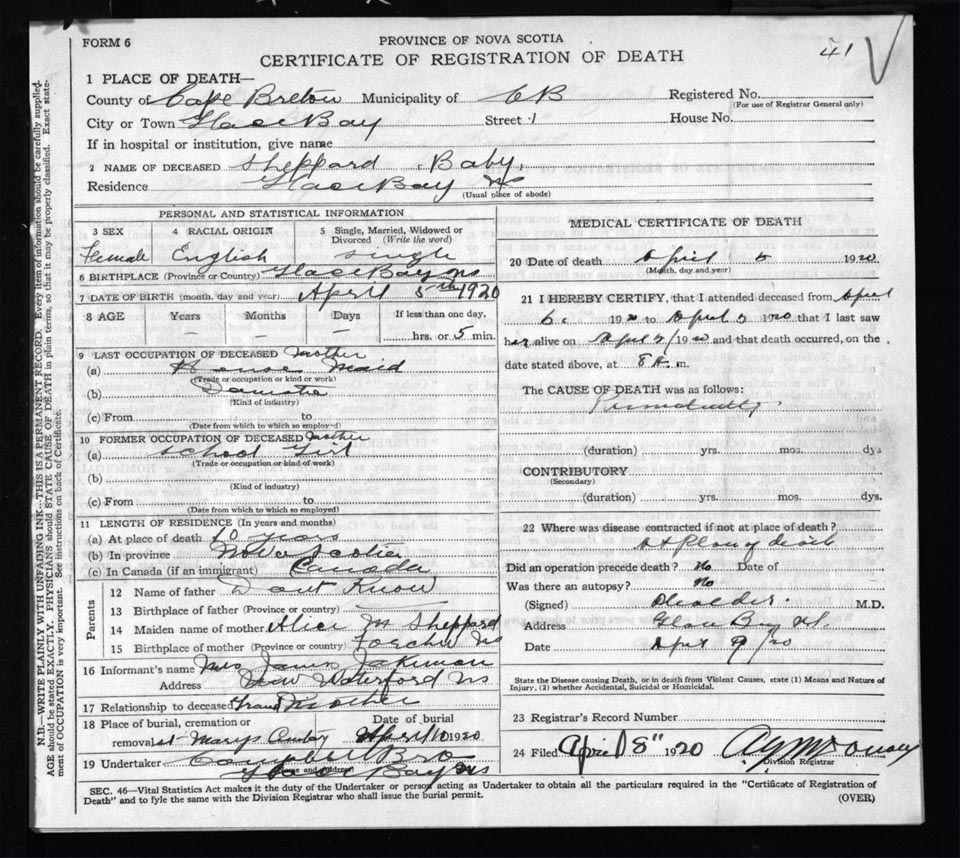 FORM 6
PROVINCE OF NOVA SCOTIA
CERTIFICATE OF REGISTRATION OF DEATH
41
1 PLACE OF DEATH—
County of Cape Breton Municipality of CB Registered No.
(For use of Registrar General only)
City or Town Glace Bay Street House No.
If in hospital or institution, give name
2 NAME OF DECEASED Sheppard Baby
Residence Glace Bay NS
(Usual place of abode)
PERSONAL AND STATISTICAL INFORMATION
3 SEX 4 RACIAL ORIGIN 5 Single, Married, Widowed or Divorced (Write the word)
Female English single
6 BIRTHPLACE (Province or Country) Glace Bay NS
7 DATE OF BIRTH (month, day and year) April 5th 1920
8 AGE Years Months Days If less than one day,
— — — hrs. or 5 min.
9 LAST OCCUPATION OF DECEASED Mother
(a) House Maid
(Trade or occupation or kind or work)
(b)
(Kind of industry)
(c) From to
(Date from which to which so employed)
10 FORMER OCCUPATION OF DECEASED Mother
(a) School Girl
(Trade or occupation or kind of work)
(b)
(Kind of industry)
(c) From to
(Date from which to which so employed)
11 LENGTH OF RESIDENCE (In years and months)
(a) At place of death 20 years
(b) In province Nova Scotia
(c) In Canada (if an immigrant) Canada
Parents
12 Name of father Dont Know
13 Birthplace of father (Province or country)
14 Maiden name of mother Alice M Sheppard
15 Birthplace of mother (Province or country) NS
16 Informant's name Mrs James
Address New Waterford NS
17 Relationship to deceased Grand Mother
18 Place of burial, cremation or removal St Marys Date of burial April 10 1920
19 Undertaker Bro
(Name and address) Glace Bay NS
MEDICAL CERTIFICATE OF DEATH
20 Date of death April 5 1920
(Month, day and year)
21 I HEREBY CERTIFY, that I attended deceased from April
1920 to April 5 1920 that I last saw
her alive on April 1920 and that death occurred, on the
date stated above, at 8 m.
The CAUSE OF DEATH was as follows:
(duration) yrs. mos. dys
CONTRIBUTORY
(Secondary)
(duration) yrs. mos. dys.
22 Where was disease contracted if not at place of death?
At place of death
Did an operation precede death? No Date of
Was there an autopsy? No
(Signed) M.D.
Address Glace Bay NS.
Date April 9/20
State the Disease causing Death, or in death from Violent Causes, state (1) Means and Nature of
Injury, (2) whether Accidental, Suicidal or Homicidal.
23 Registrar's Record Number
24 Filed April 8" 1920
Division Registrar
SEC. 46—Vital Statistics Act makes it the duty of the Undertaker or person acting as Undertaker to obtain all the particulars required in the "Certificate of Registration of
Death" and to fyle the same with the Division Registrar who shall issue the burial permit.
(OVER)
N.B.—WRITE PLAINLY WITH UNFADING INK—THIS IS A PERMANENT RECORD. Every item of information should be carefully supplied.
AGE should be stated EXACTLY. PHYSICIANS should STATE CAUSE OF DEATH in plain terms, so that it may be properly classified. Exact statement of OCCUPATION is very important. See instructions on back of Certificate.